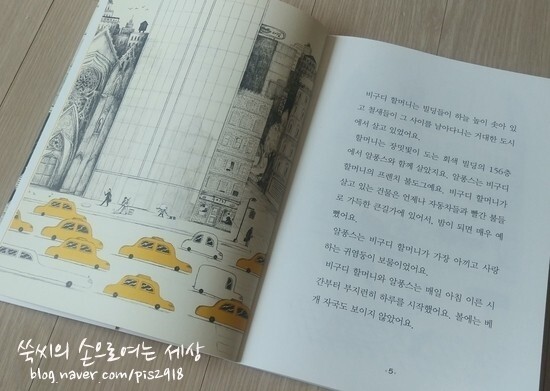 비구디 할머니는 빌딩들이 하늘 높이 솟아 있
고 철새들이 그 사이를 날아다니는 거대한 도시
에서 살고 있었어요.
할머니는 장밋빛이 도는 회색 빌딩의 156층
에서 알퐁스와 함께 살았지요. 알퐁스는 비구디
할머니의 프렌치 불도그예요. 비구디 할머니가
살고 있는 건물은 언제나 자동차들과 빨간 불들
로 가득한 큰길가에 있어서, 밤이 되면 매우 예
뻤어요.
알퐁스는 비구디 할머니가 가장 아끼고 사랑
하는 귀염둥이 보물이었어요.
비구디 할머니와 알퐁스는 매일 아침 이른 시
간부터 부지런히 하루를 시작했어요. 볼에는 베
개 자국도 보이지 않았어요.
-5-
쑥씨의 손으로여는 세상
blog.naver.com/pis2918